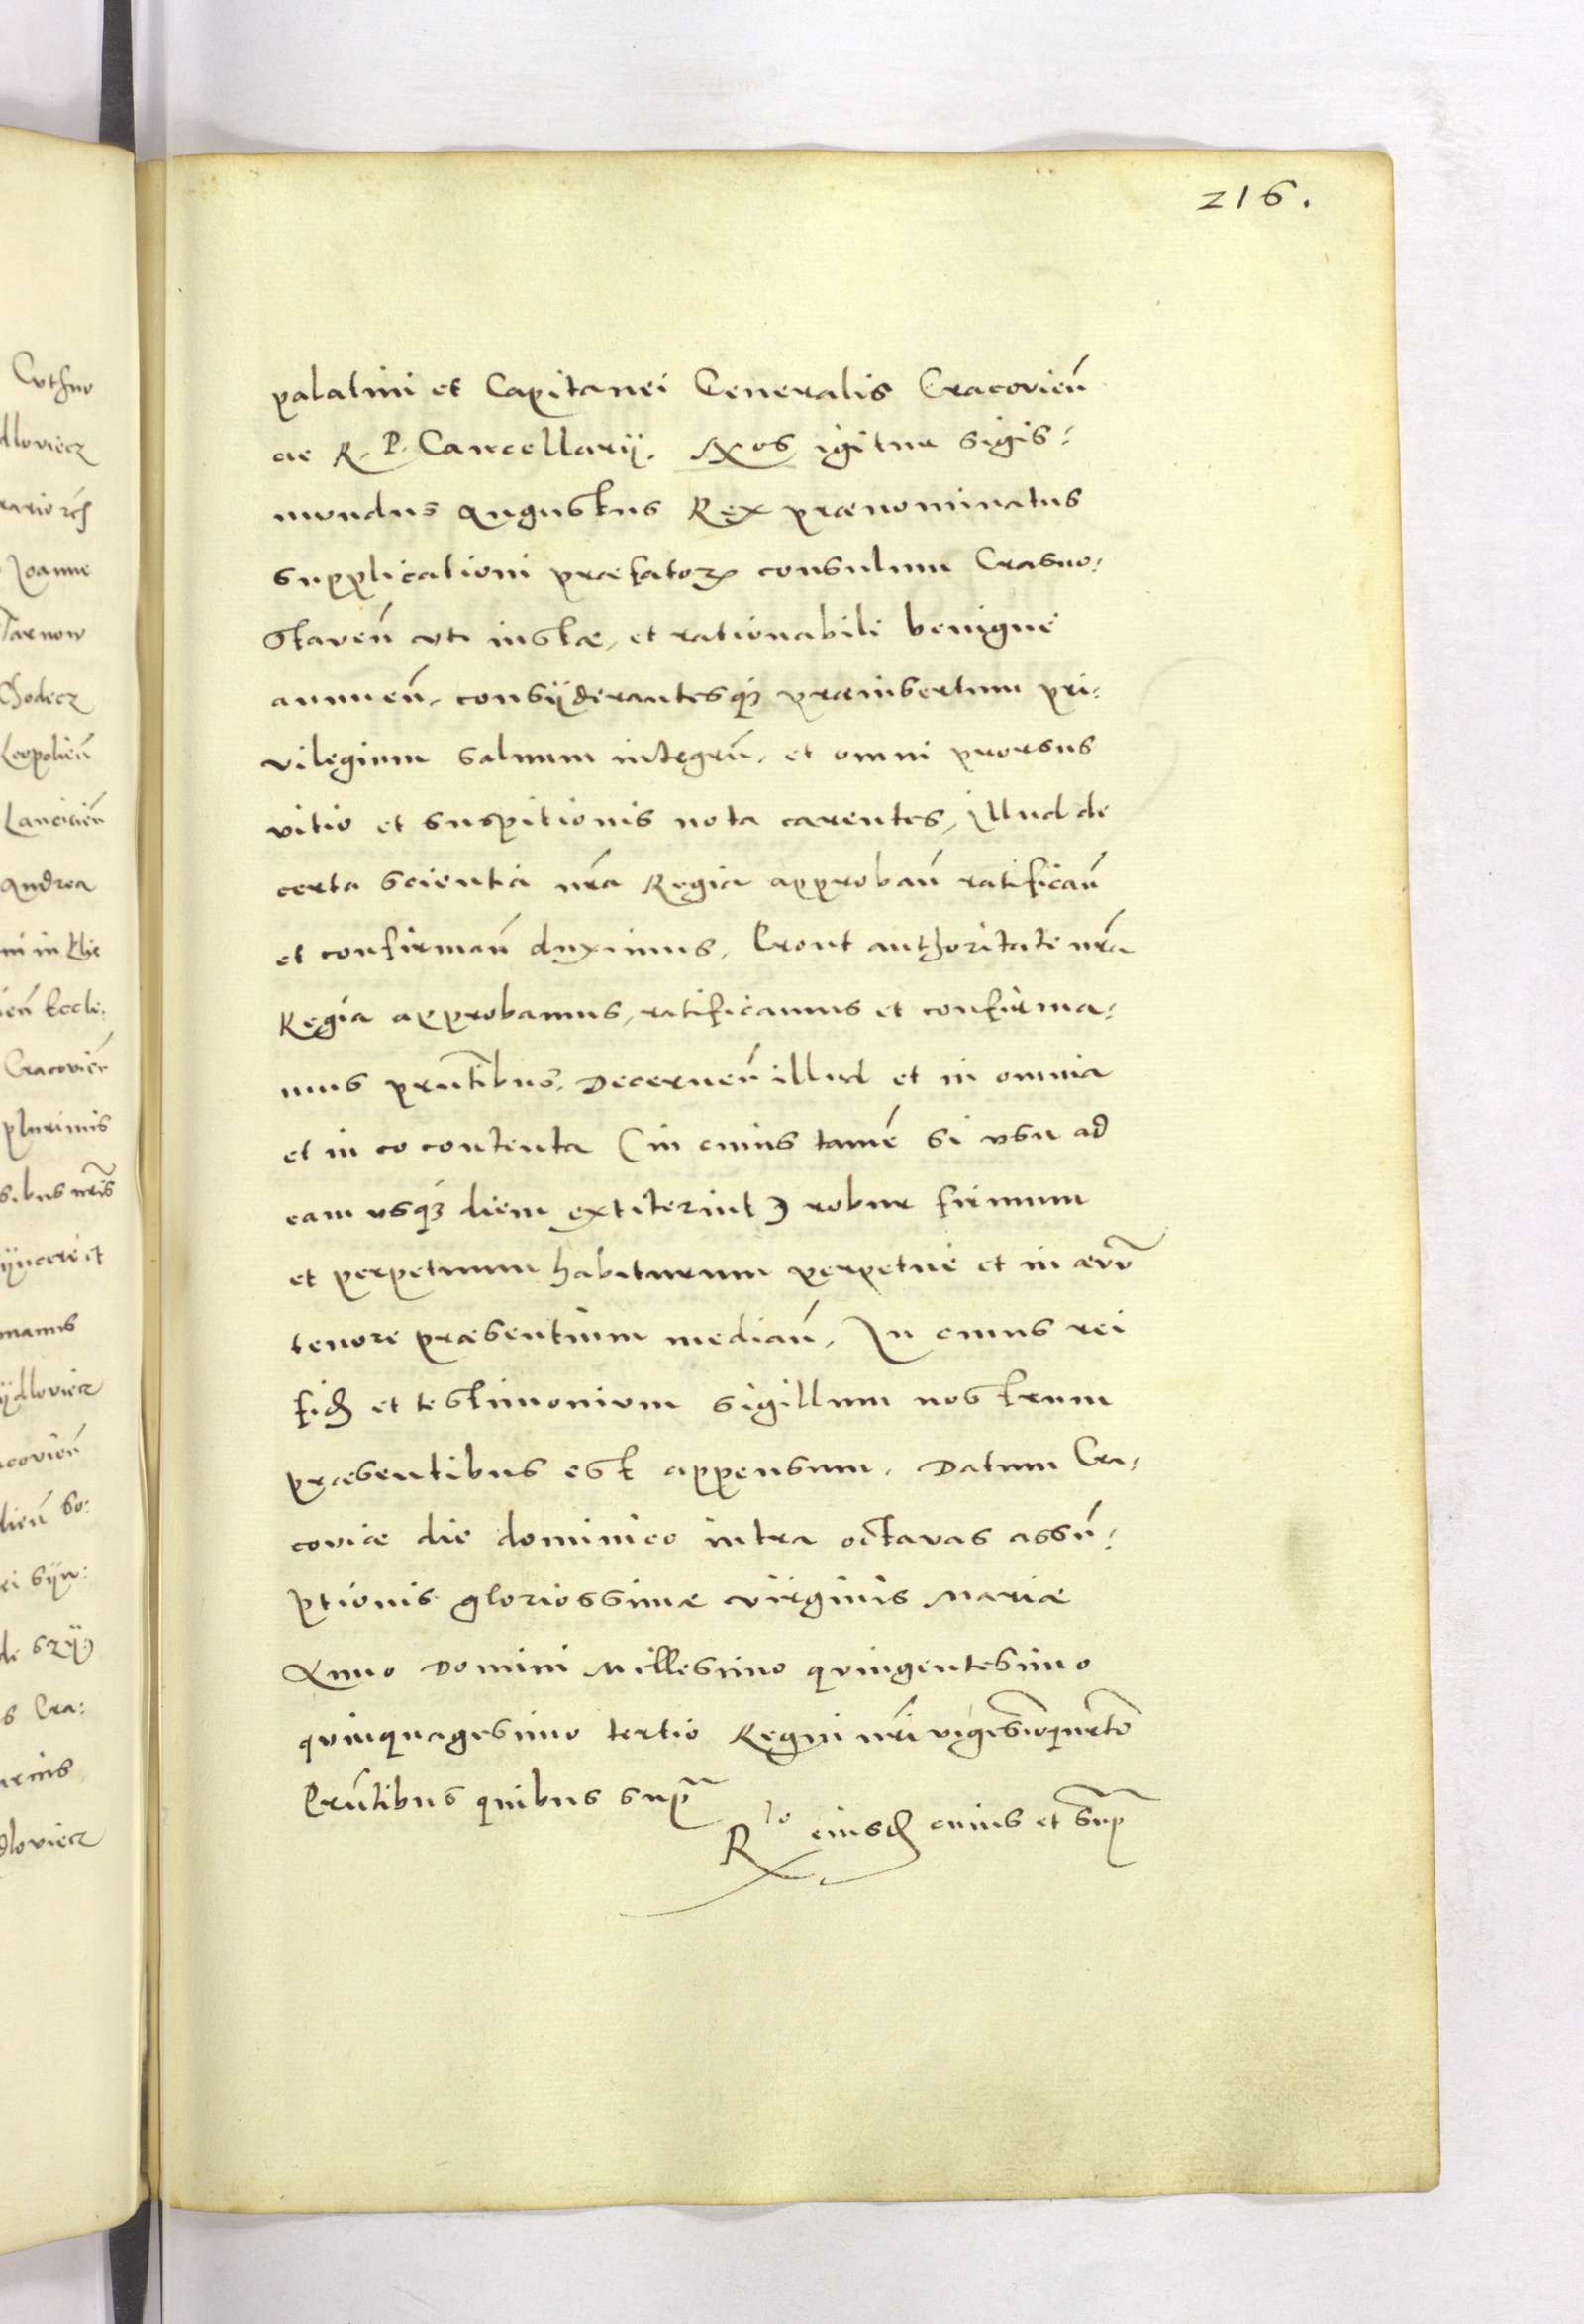 216.
palatini et Capitanei Generalis Cracovień
ac R. P. Cancellarij. Nos igitur Sigis:
mundus Augustus Rex prænominatus
supplicationi præfatoꝝ consulum Crasno:
staveń uti iustæ, et rationabili benigne
annueń, consijderantesqȝ præinsertum pri:
vilegium salvum integrū, et omni prorsus
vitio et suspitionis nota carentes, illud de
certa scientia nr̄a Regia approbań ratificań
et confirmań duximus, Prout authoritate nr̄a
Regia approbamus, ratificamus et confirma:
mus prn̄tibus, Decerneń illud et in omnia
et in eo contenta (in cuius tamē si usu ad
eam usqȝ diem extiterint) robur firmum
et perpetuum habiturum perpetue et in ævū
tenore præsentium mediań, In cuius rei
fidē et testimonium sigillum nostrum
præsentibus est appensum. Datum Cra:
coviæ die dominico intra octavas assū:
ptionis gloriossimæ virginis Mariæ
Anno Domini Millesimo quingentesimo
quinquagesimo tertio Regni nr̄i vigesimoquarto
Prn̄tibus quibus supra
R lo eiusdē cuius et supra
Cuthno
dloviecz
Joanne
Tarnow
Chodecz
Leopolień
Lancicień
Andrea
ień Eccle:
Cracovień
plurimis
sibus nr̄is
manus
ijdloviecz
covień
lień so:
s Cra:
dloviecz